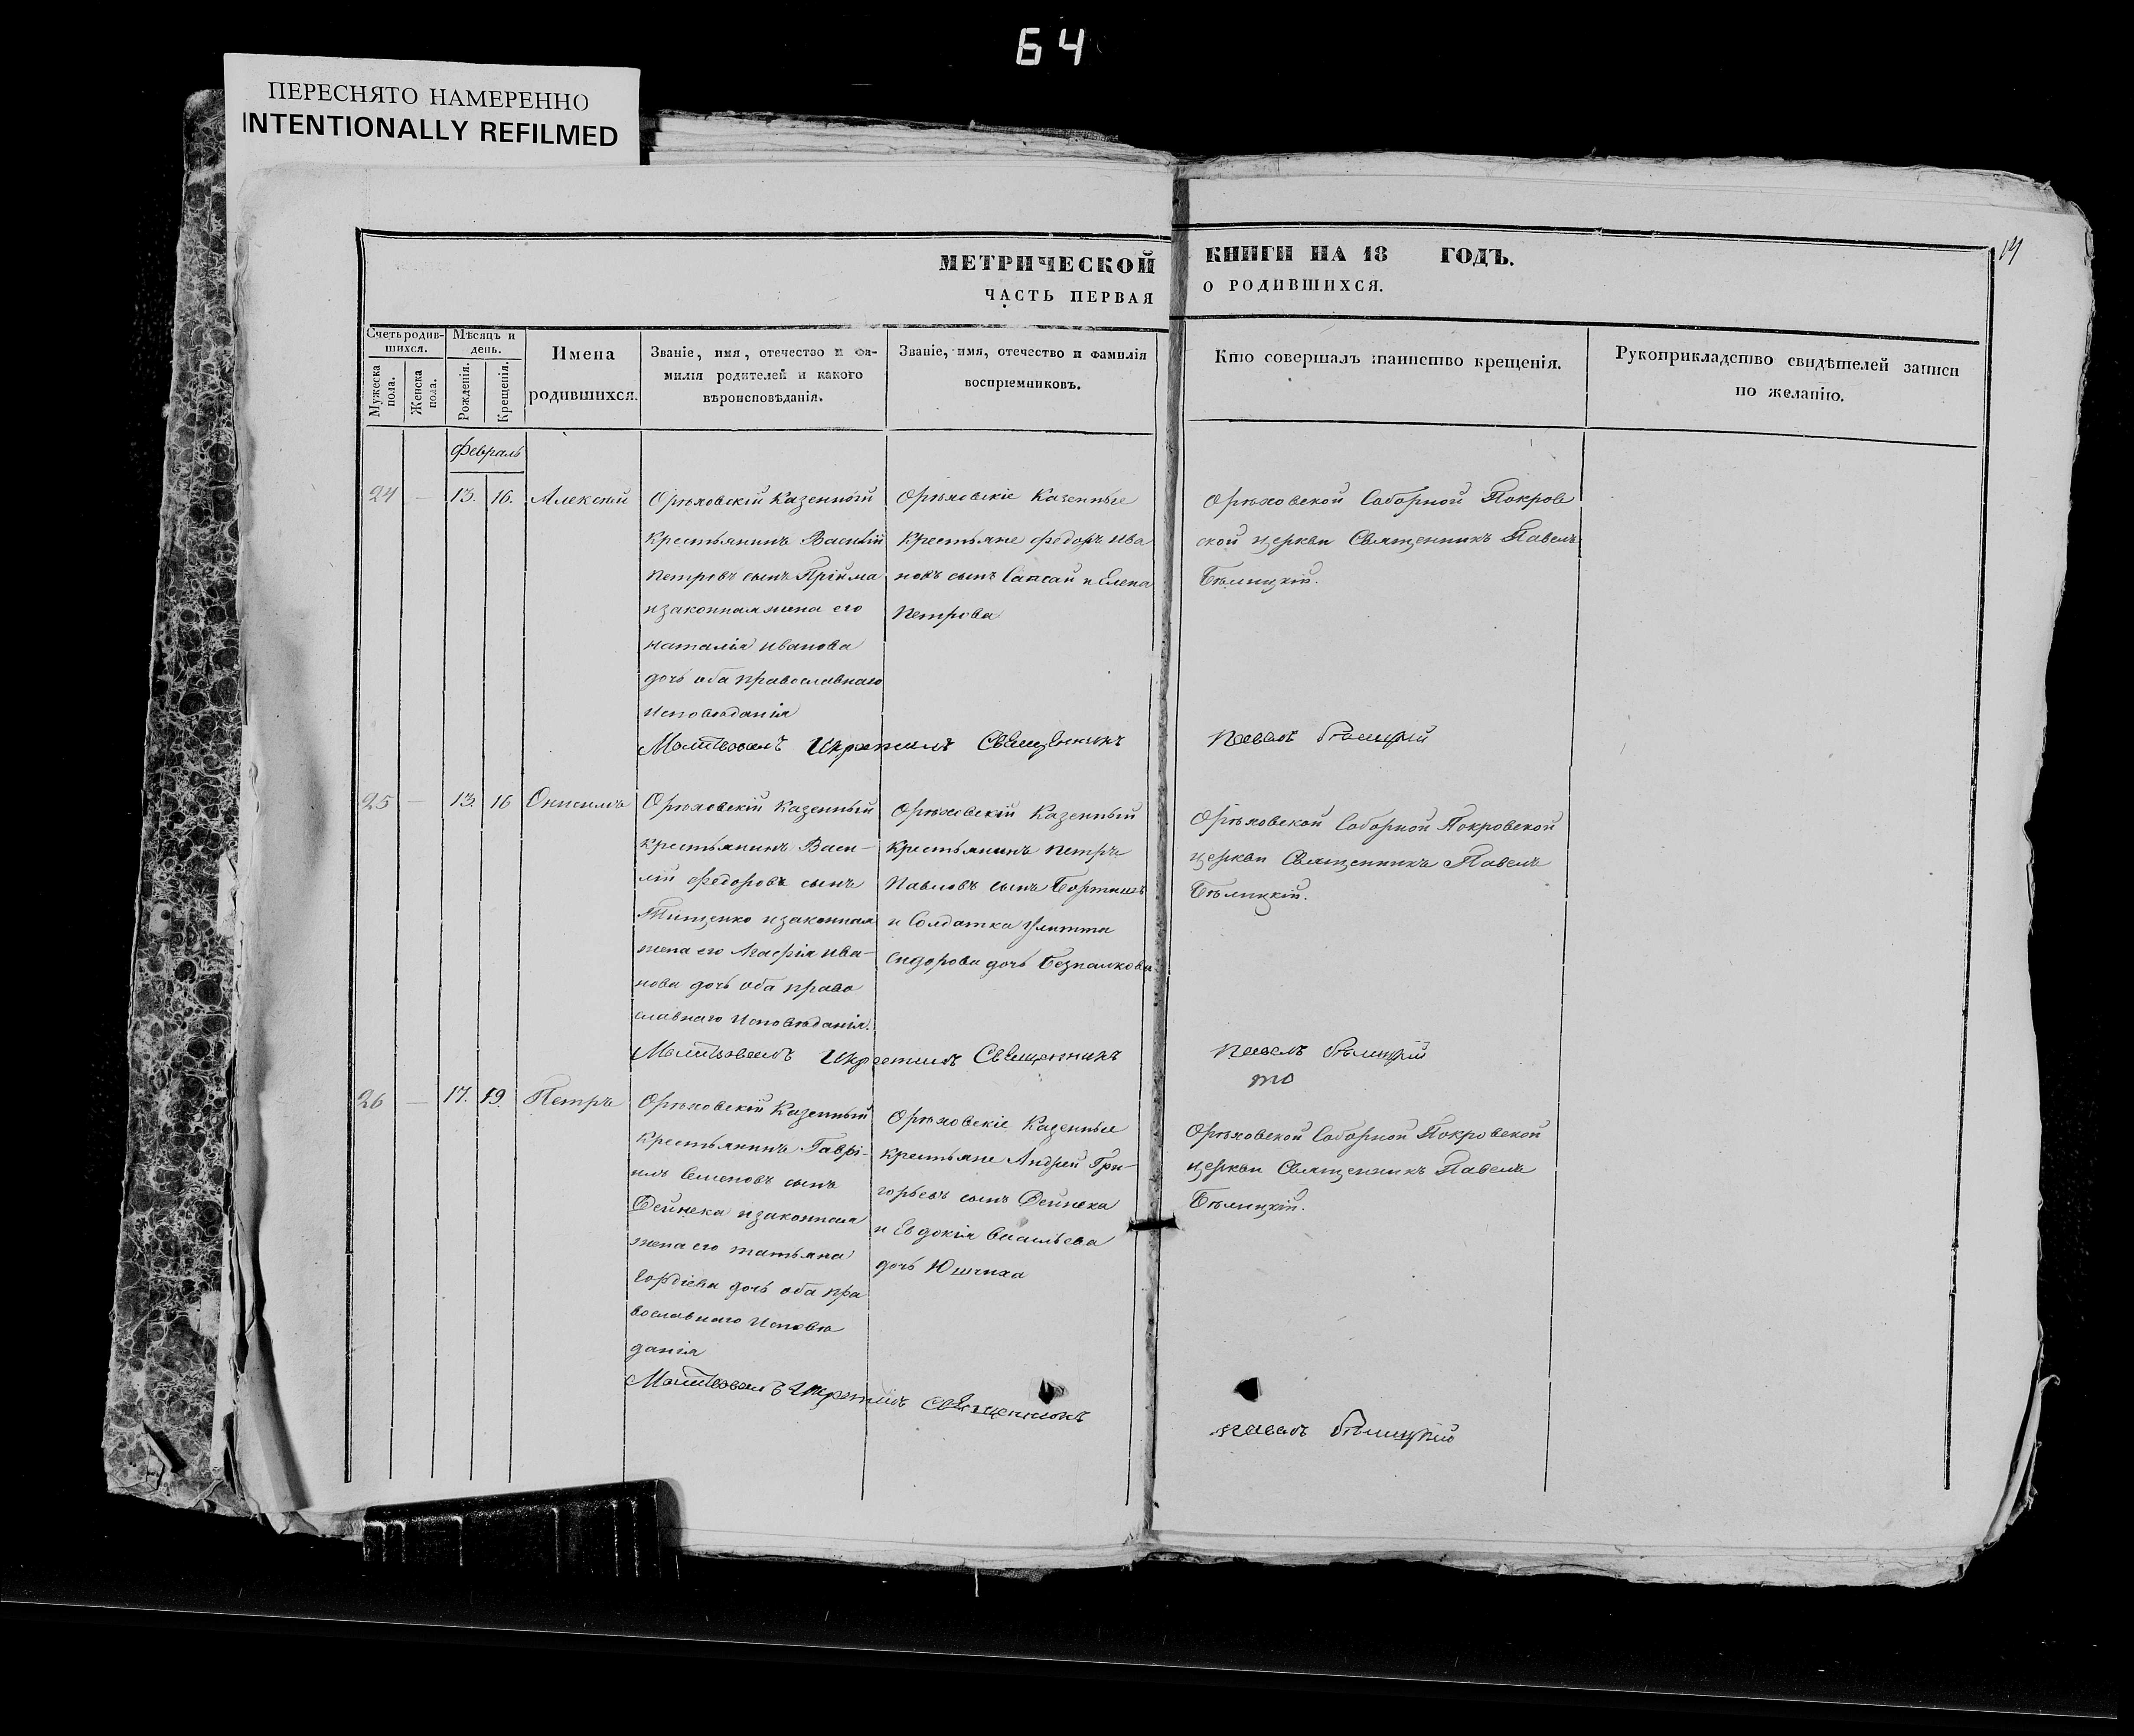 64
ПЕРЕСНЯТО НАМЕРЕННО
INTENTIONALLY REFILMED
14
МЕТРИЧЕСКОЙ КНИГИ НА 18 ГОДЪ.
ЧАСТЬ ПЕРВАЯ О РОДИВШИХСЯ.
Счетъ родив-
шихся.
Мужеска пола.
Женска пола.
Мѣсяцъ и
день.
Рожденія.
Крещенія.
Имена
родившихся.
Званіе, имя, отечество и фа-
милія родителей и какого
вѣроисповѣданія.
Званіе, имя, отечество и фамилія
воспріемниковъ.
Кто совершалъ таинство крещенія.
Рукоприкладство свидѣтелей записи
по желанію.
Февраль
24 — 13. 16. Алексѣй
Орѣховскій Казенный
Крестьянинъ Василій
Петровъ сынъ Прійма
и законная жена его
Наталія Иванова
дочь оба православнаго
исповѣданія
Орѣховскіе Казенные
Крестьяне Федоръ Ива
новъ сынъ Сапсай и Елена
Петрова
Орѣховской Соборной Покров
ской церкви Священникъ Павелъ
Бѣлицкій.
Молитвовалъ и крестилъ Священникъ Павелъ Бѣлицкій
25 — 13. 16 Онисимъ
Орѣховскій Казенный
Крестьянинъ Васи-
лій Федоровъ сынъ
Тищенко и законная
жена его Агафія Ива-
нова дочь оба право
славнаго исповѣданія.
Орѣховскій Казенный
Крестьянинъ Петръ
Павловъ сынъ
и Солдатка Улитта
Сидорова дочь Безпалкова
Орѣховской Соборной Покровской
церкви Священникъ Павелъ
Бѣлицкій.
Молитвовалъ и крестилъ Священникъ Павелъ Бѣлицкій
то
26 — 17. 19. Петръ
Орѣховскій Казенный
Крестьянинъ Гаврі-
илъ Семеновъ сынъ
Дейнека и законная
жена его Татьяна
Гордіева дочь оба пра
вославнаго исповѣ
данія
Орѣховскіе Казенные
Крестьяне Андрей Гри-
горьевъ сынъ Дейнека
и Евдокія Васильева
дочь Юшчиха
Орѣховской Соборной Покровской
церкви Священникъ Павелъ
Бѣлицкій.
Молитвовалъ и крестилъ Священникъ Павелъ Бѣлицкій